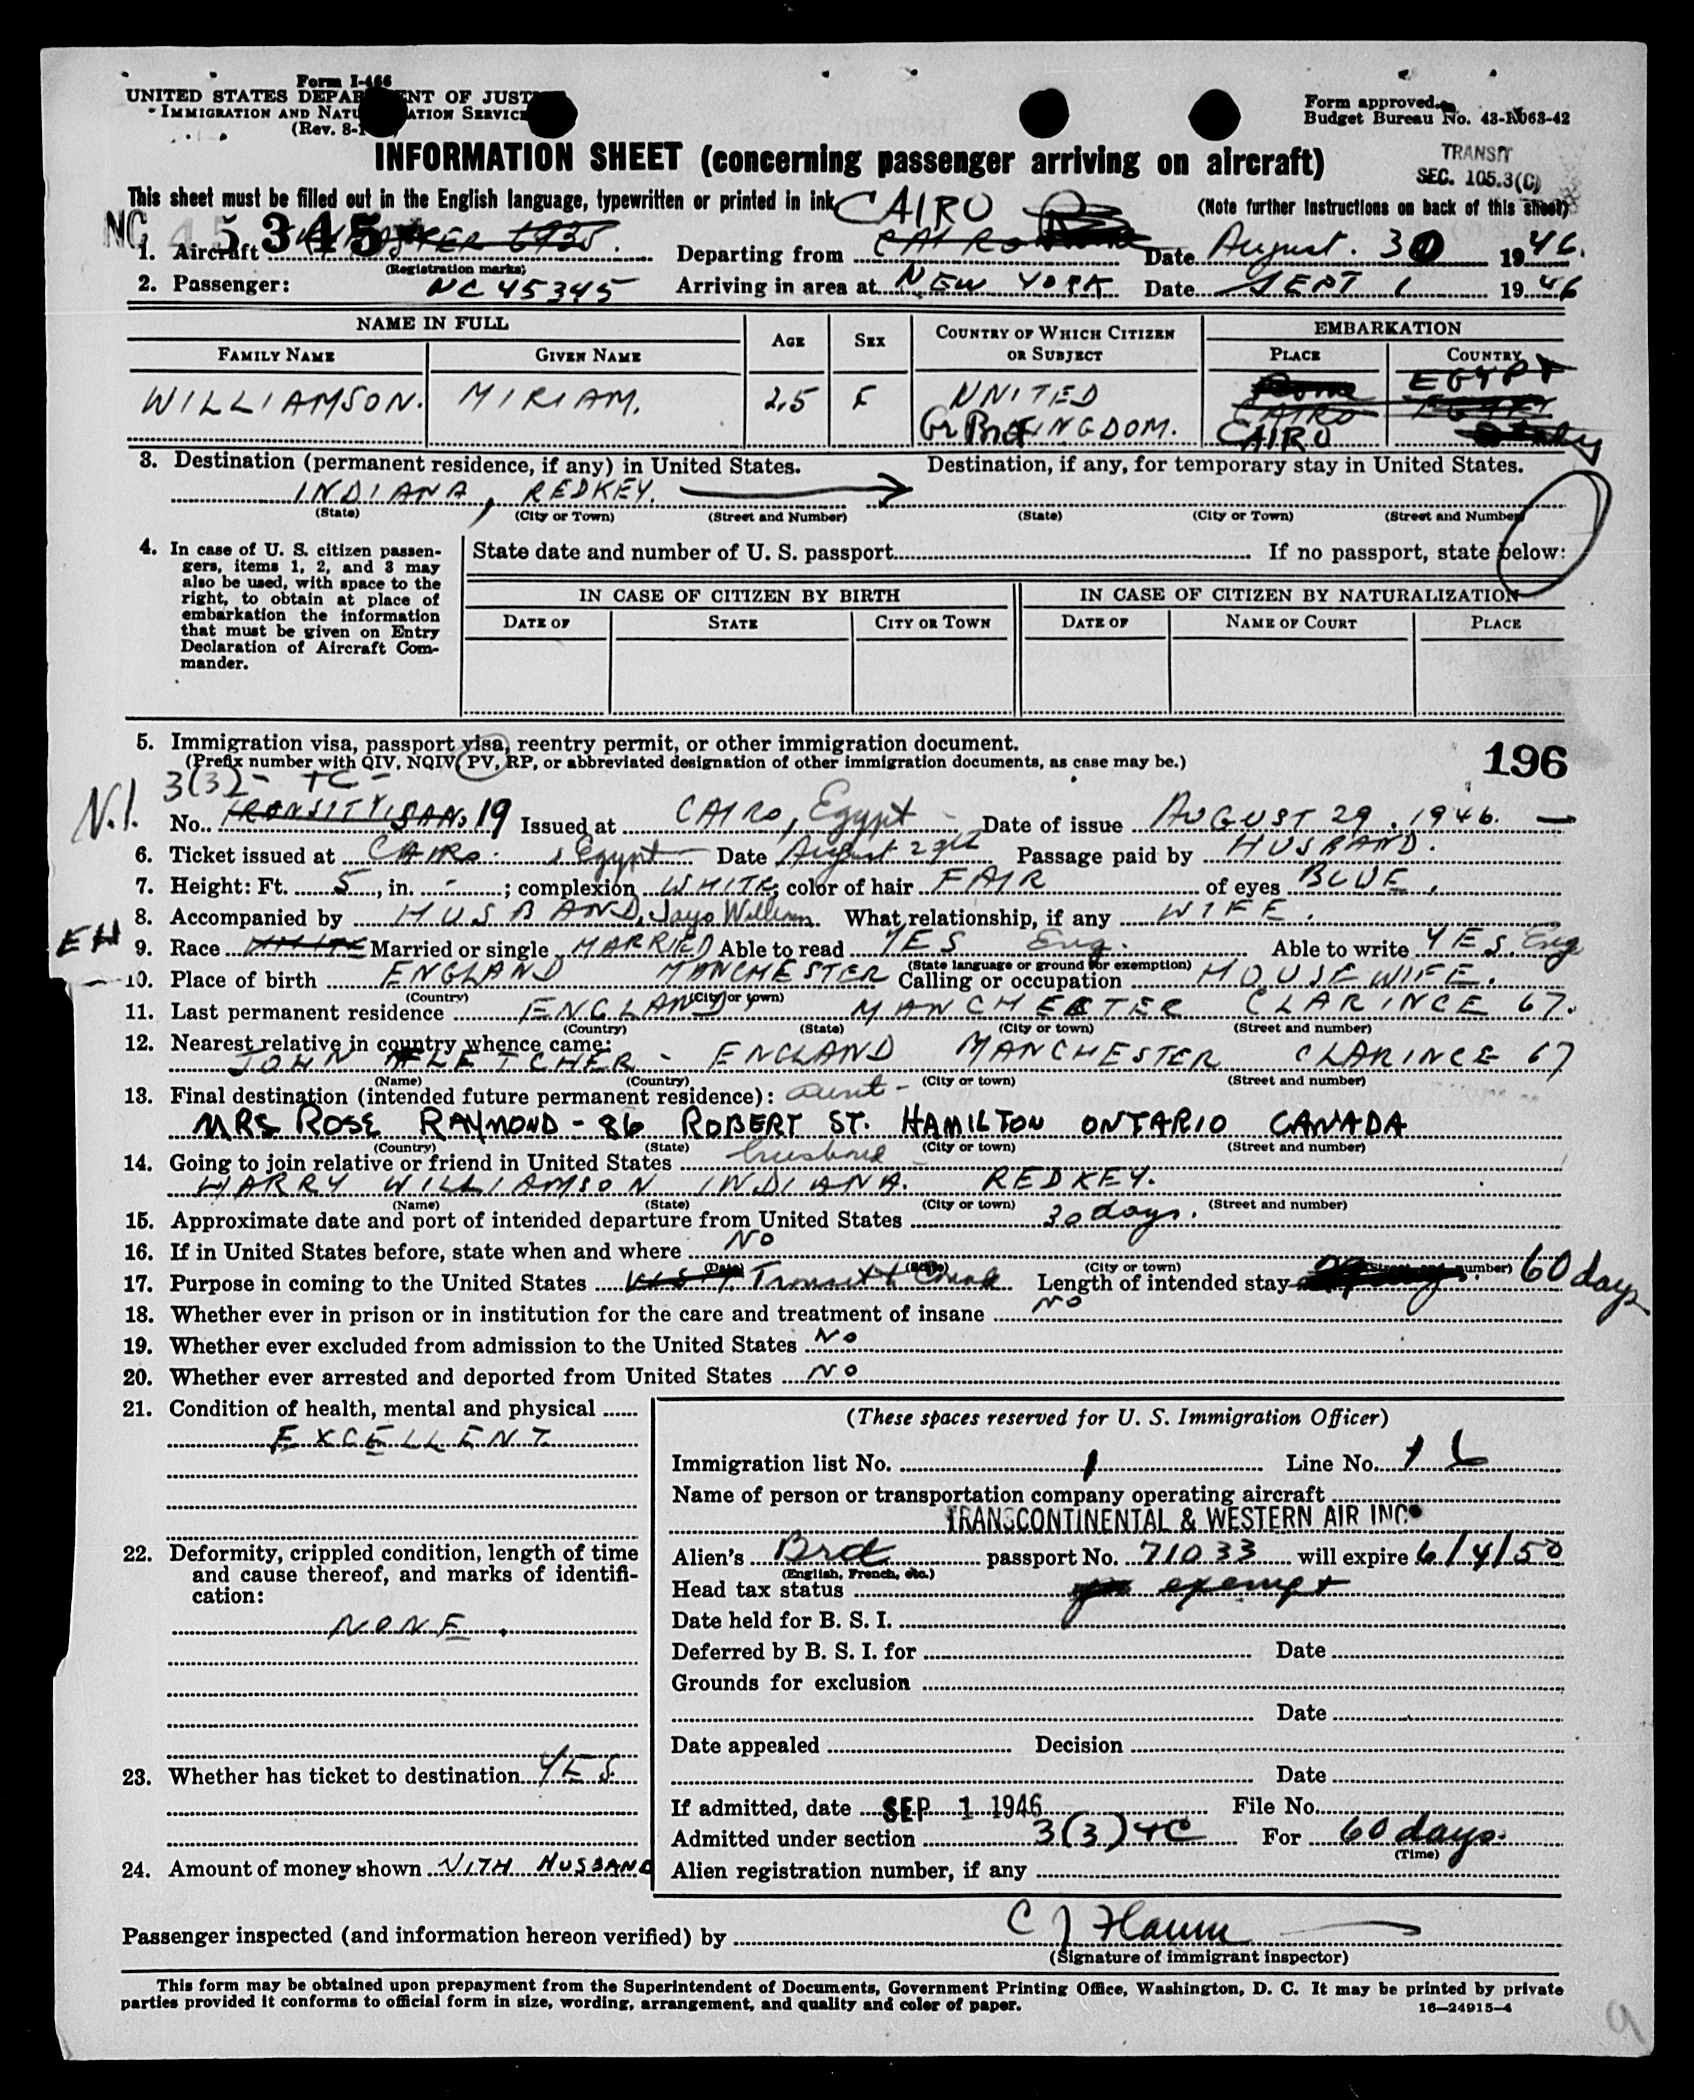 Form I-466
UNITED STATES DEPAR NT OF JUST
IMMIGRATION AND NATU ATION SERVICE
(Rev. 8-1
Form approved.
Budget Bureau No. 43-R063-42
INFORMATION SHEET (concerning passenger arriving on aircraft)
TRANSIT
SEC. 105.3(C)
This sheet must be filled out in the English language, typewritten or printed in ink
CAIRO
(Note further instructions on back of this sheet)
NC 45345
1. Aircraft Departing from CAIRO Date August. 30 1946.
(Registration marks)
2. Passenger: NC 45345 Arriving in area at NEW YORK Date SEPT 1 1946
NAME IN FULL AGE SEX COUNTRY OF WHICH CITIZEN OR SUBJECT EMBARKATION
FAMILY NAME GIVEN NAME PLACE COUNTRY
WILLIAMSON. MIRIAM. 25 F UNITED KINGDOM. CAIRO EGYPT
Gr Brit CAIRO
3. Destination (permanent residence, if any) in United States. Destination, if any, for temporary stay in United States.
INDIANA, REDKEY.
(State) (City or Town) (Street and Number) (State) (City or Town) (Street and Number)
4. In case of U. S. citizen passen-
gers, items 1, 2, and 3 may
also be used, with space to the
right, to obtain at place of
embarkation the information
that must be given on Entry
Declaration of Aircraft Com-
mander.
State date and number of U. S. passport If no passport, state below:
IN CASE OF CITIZEN BY BIRTH IN CASE OF CITIZEN BY NATURALIZATION
DATE OF STATE CITY OR TOWN DATE OF NAME OF COURT PLACE
5. Immigration visa, passport visa, reentry permit, or other immigration document.
(Prefix number with QIV, NQIV, PV, RP, or abbreviated designation of other immigration documents, as case may be.)
196
3(3) - TC -
N.I.
No. TRANSIT VISA No. 19 Issued at CAIRO, Egypt Date of issue AUGUST 29. 1946.
6. Ticket issued at CAIRO. Egypt Date August 29th Passage paid by HUSBAND.
7. Height: Ft. 5, in. - ; complexion WHITE; color of hair FAIR of eyes BLUE.
8. Accompanied by HUSBAND, William What relationship, if any WIFE.
EH
9. Race WHITE Married or single MARRIED Able to read YES Eng. Able to write YES Eng
(State language or ground for exemption)
10. Place of birth ENGLAND MANCHESTER Calling or occupation HOUSEWIFE.
(Country) (City or town)
11. Last permanent residence ENGLAND MANCHESTER CLARINCE 67.
(Country) (State) (City or town) (Street and number)
12. Nearest relative in country whence came:
JOHN FLETCHER - ENGLAND MANCHESTER CLARINCE 67
(Name) (Country) (City or town) (Street and number)
13. Final destination (intended future permanent residence): aunt -
MRS ROSE RAYMOND - 86 ROBERT ST. HAMILTON ONTARIO CANADA
(Country) (State) (City or town) (Street and number)
14. Going to join relative or friend in United States husband
HARRY WILLIAMSON INDIANA. REDKEY.
(Name) (State) (City or town) (Street and number)
15. Approximate date and port of intended departure from United States 30 days.
16. If in United States before, state when and where NO
(Date) (State) (City or town) (Street and number)
17. Purpose in coming to the United States VISIT Transit Length of intended stay 60 days
18. Whether ever in prison or in institution for the care and treatment of insane NO
19. Whether ever excluded from admission to the United States NO
20. Whether ever arrested and deported from United States NO
21. Condition of health, mental and physical
EXCELLENT
22. Deformity, crippled condition, length of time
and cause thereof, and marks of identifi-
cation:
NONE.
23. Whether has ticket to destination YES
24. Amount of money shown WITH HUSBAND
(These spaces reserved for U. S. Immigration Officer)
Immigration list No. 1 Line No. 16
Name of person or transportation company operating aircraft
TRANSCONTINENTAL & WESTERN AIR INC
Alien's Brit passport No. 71033 will expire 6/4/50
(English, French, etc.)
Head tax status exempt
Date held for B. S. I.
Deferred by B. S. I. for Date
Grounds for exclusion
Date
Date appealed Decision
Date
If admitted, date SEP 1 1946 File No.
Admitted under section 3(3) TC For 60 days.
(Time)
Alien registration number, if any
Passenger inspected (and information hereon verified) by C J
(Signature of immigrant inspector)
This form may be obtained upon prepayment from the Superintendent of Documents, Government Printing Office, Washington, D. C. It may be printed by private
parties provided it conforms to official form in size, wording, arrangement, and quality and color of paper.
16—24915-4
9